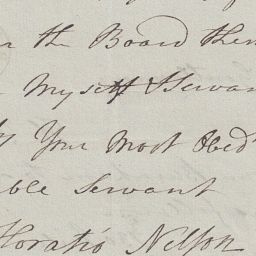 the Board then
Myself & Servan
Your Most Obed
ble Servant
Horatio Nelson